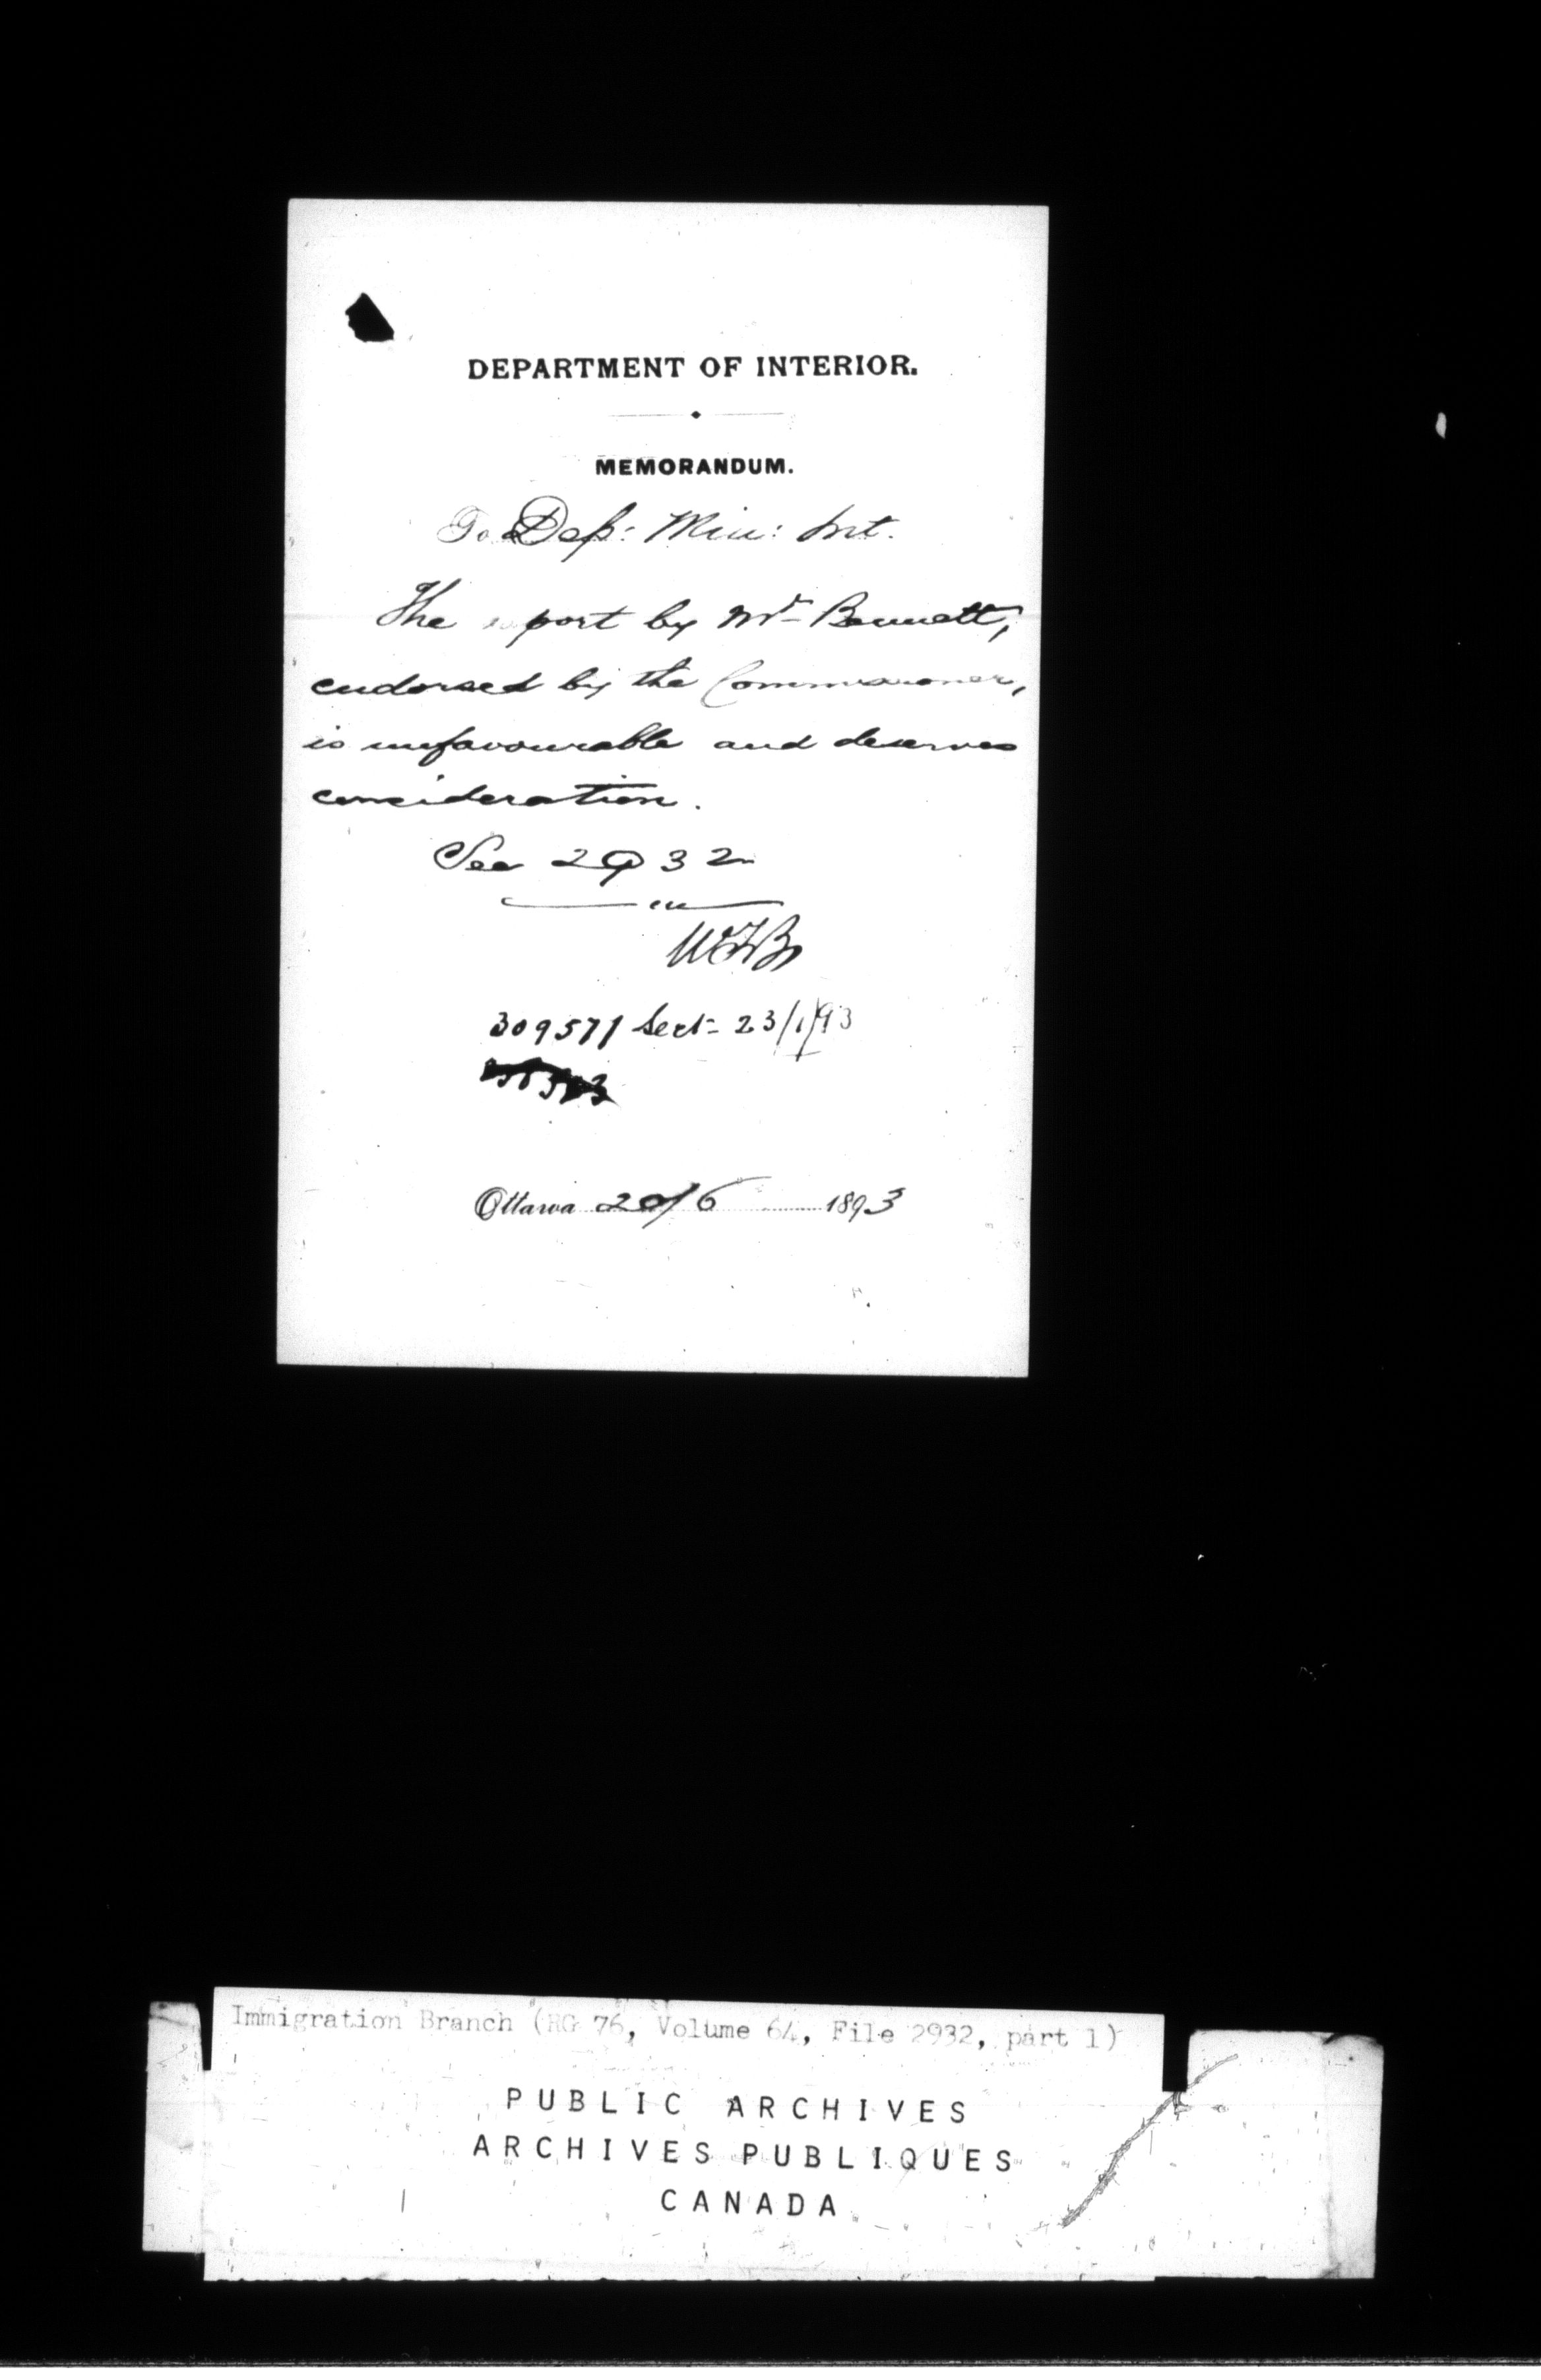 DEPARTMENT OF INTERIOR.
MEMORANDUM.
To Dep: Min: Int.
The report by Mr Bennett,
endorsed by the Commissioner,
is unfavourable and deserves
consideration.
See 2932
309571 Sect- 23/1/93
Ottawa 20/6 1893
Immigration Branch (RG 76, Volume 64, File 2932, part 1)
PUBLIC ARCHIVES
ARCHIVES PUBLIQUES
CANADA